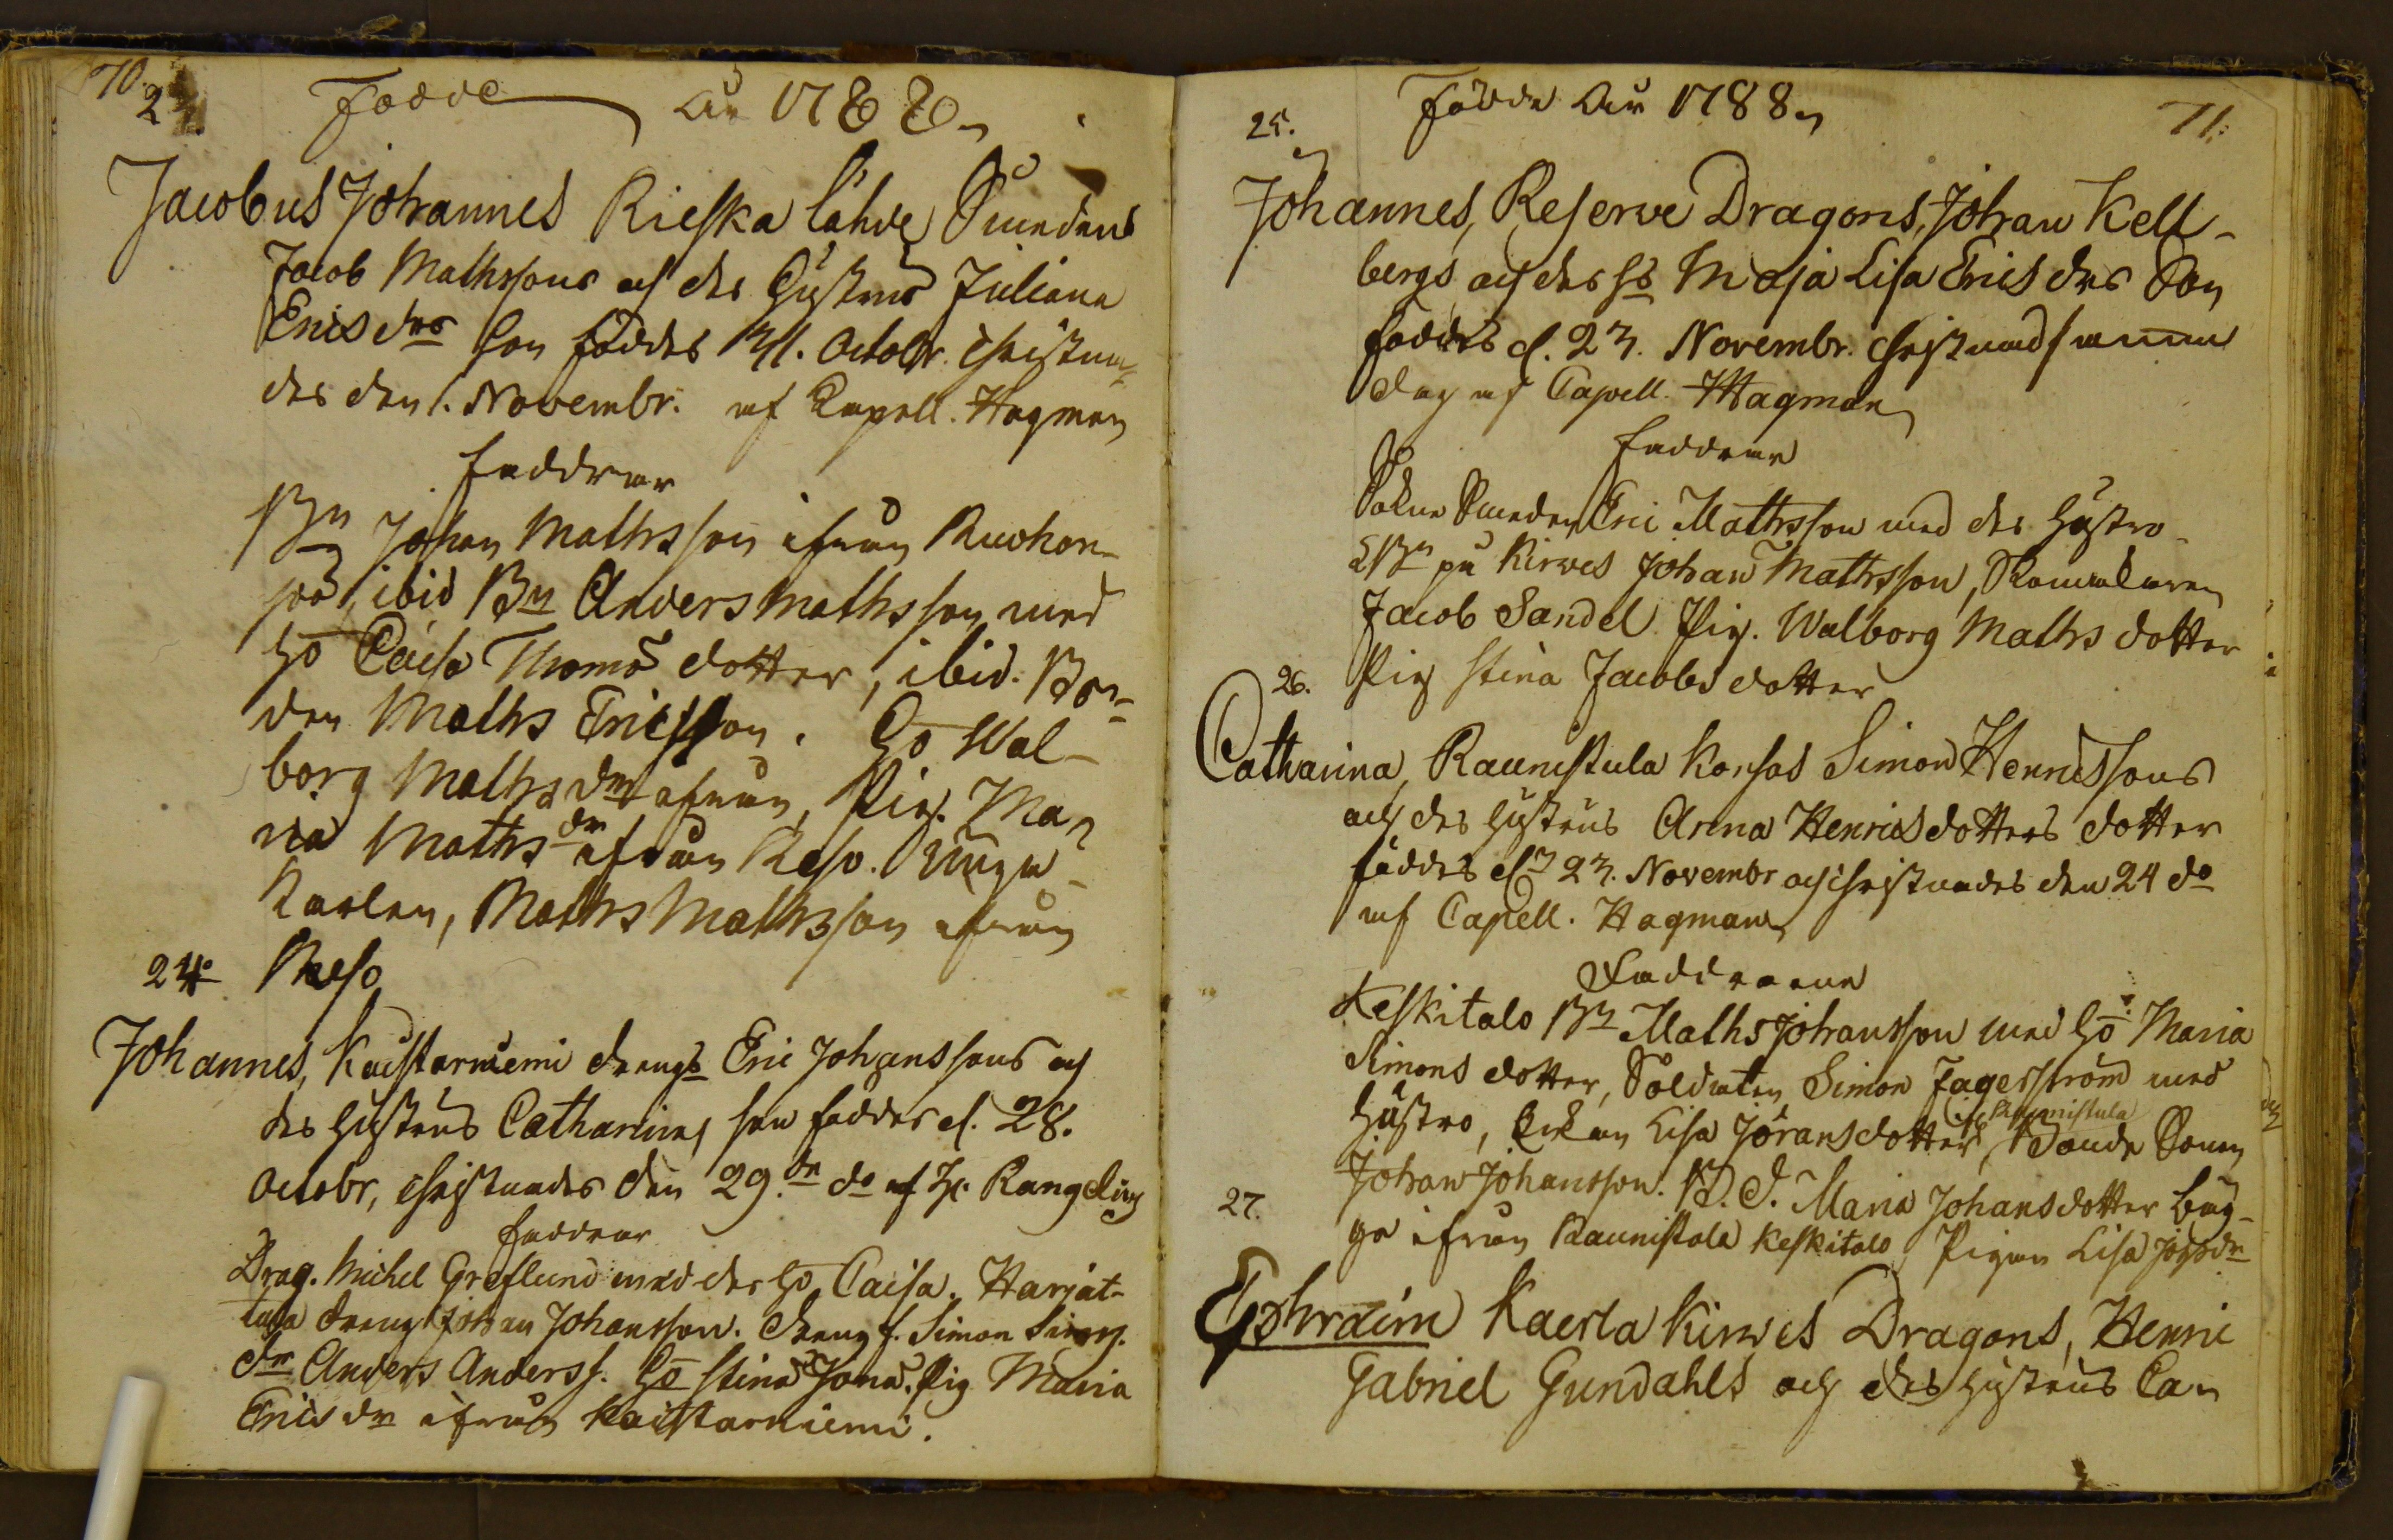 70.
23.
Födde År 1788
Jacobus Johannes Rieska lähde Smedens
Jacob Mathssons och des Hustrus Juliana
Erics drs Son föddes 31. Octobr. christna-
des den 1. Novembr. af Capell. Hagman
faddrar
Bn Johan Mathsson ifrån Ruohon-
pää, ibid Bn Anders Mathsson med
Ho Caisa Thomæ dotter, ibid. Bon-
den Maths Ericsson. Ho Wal-
borg Maths dr ifrån, Pig. Ma-
ria Maths dr ifrån Reso. unga
Karlen, Maths Mathsson ifrån
Reso
24.
Johannes, Kaistarniemi drengs Eric Johanssons och
des Hustrus Catharinæ son föddes d. 28.
Octobr, christnades den 29.de do af H. Rangelin
faddrar
Drag. Michel Greflund med des Ho Caisa. Harjat-
tula dreng Johan Johansson. dreng f. Simon Sims.
dr Anders Anderss. Ho Stina Jona. Pig Maria
Erics dr ifrån Kaistarniemi.
71.
Födde År 1788
25.
Johannes, Reserve Dragons, Johan Kell-
bergs och des Hs Maja Lisa Erics drs Son
föddes d. 23. Novembr. christnad samma
dag af Capell. Hagman
faddrar
Sokne Smeden Eric Mathsson med des Hustro
Bn på Kirves Johan Mathsson, Skomakaren
Jacob Sandel Pig. Walborg Maths dotter
Pig Stina Jacobs dotter
26.
Catharina, Raunistula Korhos Simon Henricssons
och des Hustrus Anna Henrics dotters dotter
föddes d. 23. Novembr och christnades den 24 do
af Capell. Hagman
Faddrarne
Keskitalo Bn Maths Johansson med Ho Maria
Simons dotter, Soldaten Simon Jagerström med
Hustro, Enkan Lisa Jörans dotter, Bonde Sonen
if Raunistula
Johan Johansson. B. D. Maria Johans dotter bäg-
ge ifrån Raunistula Keskitalo, Pigan Lisa Johs dr
27.
Ephraim Kaerla Kirves Dragons, Henric
Gabriel Gundahls och des Hustrus Ca